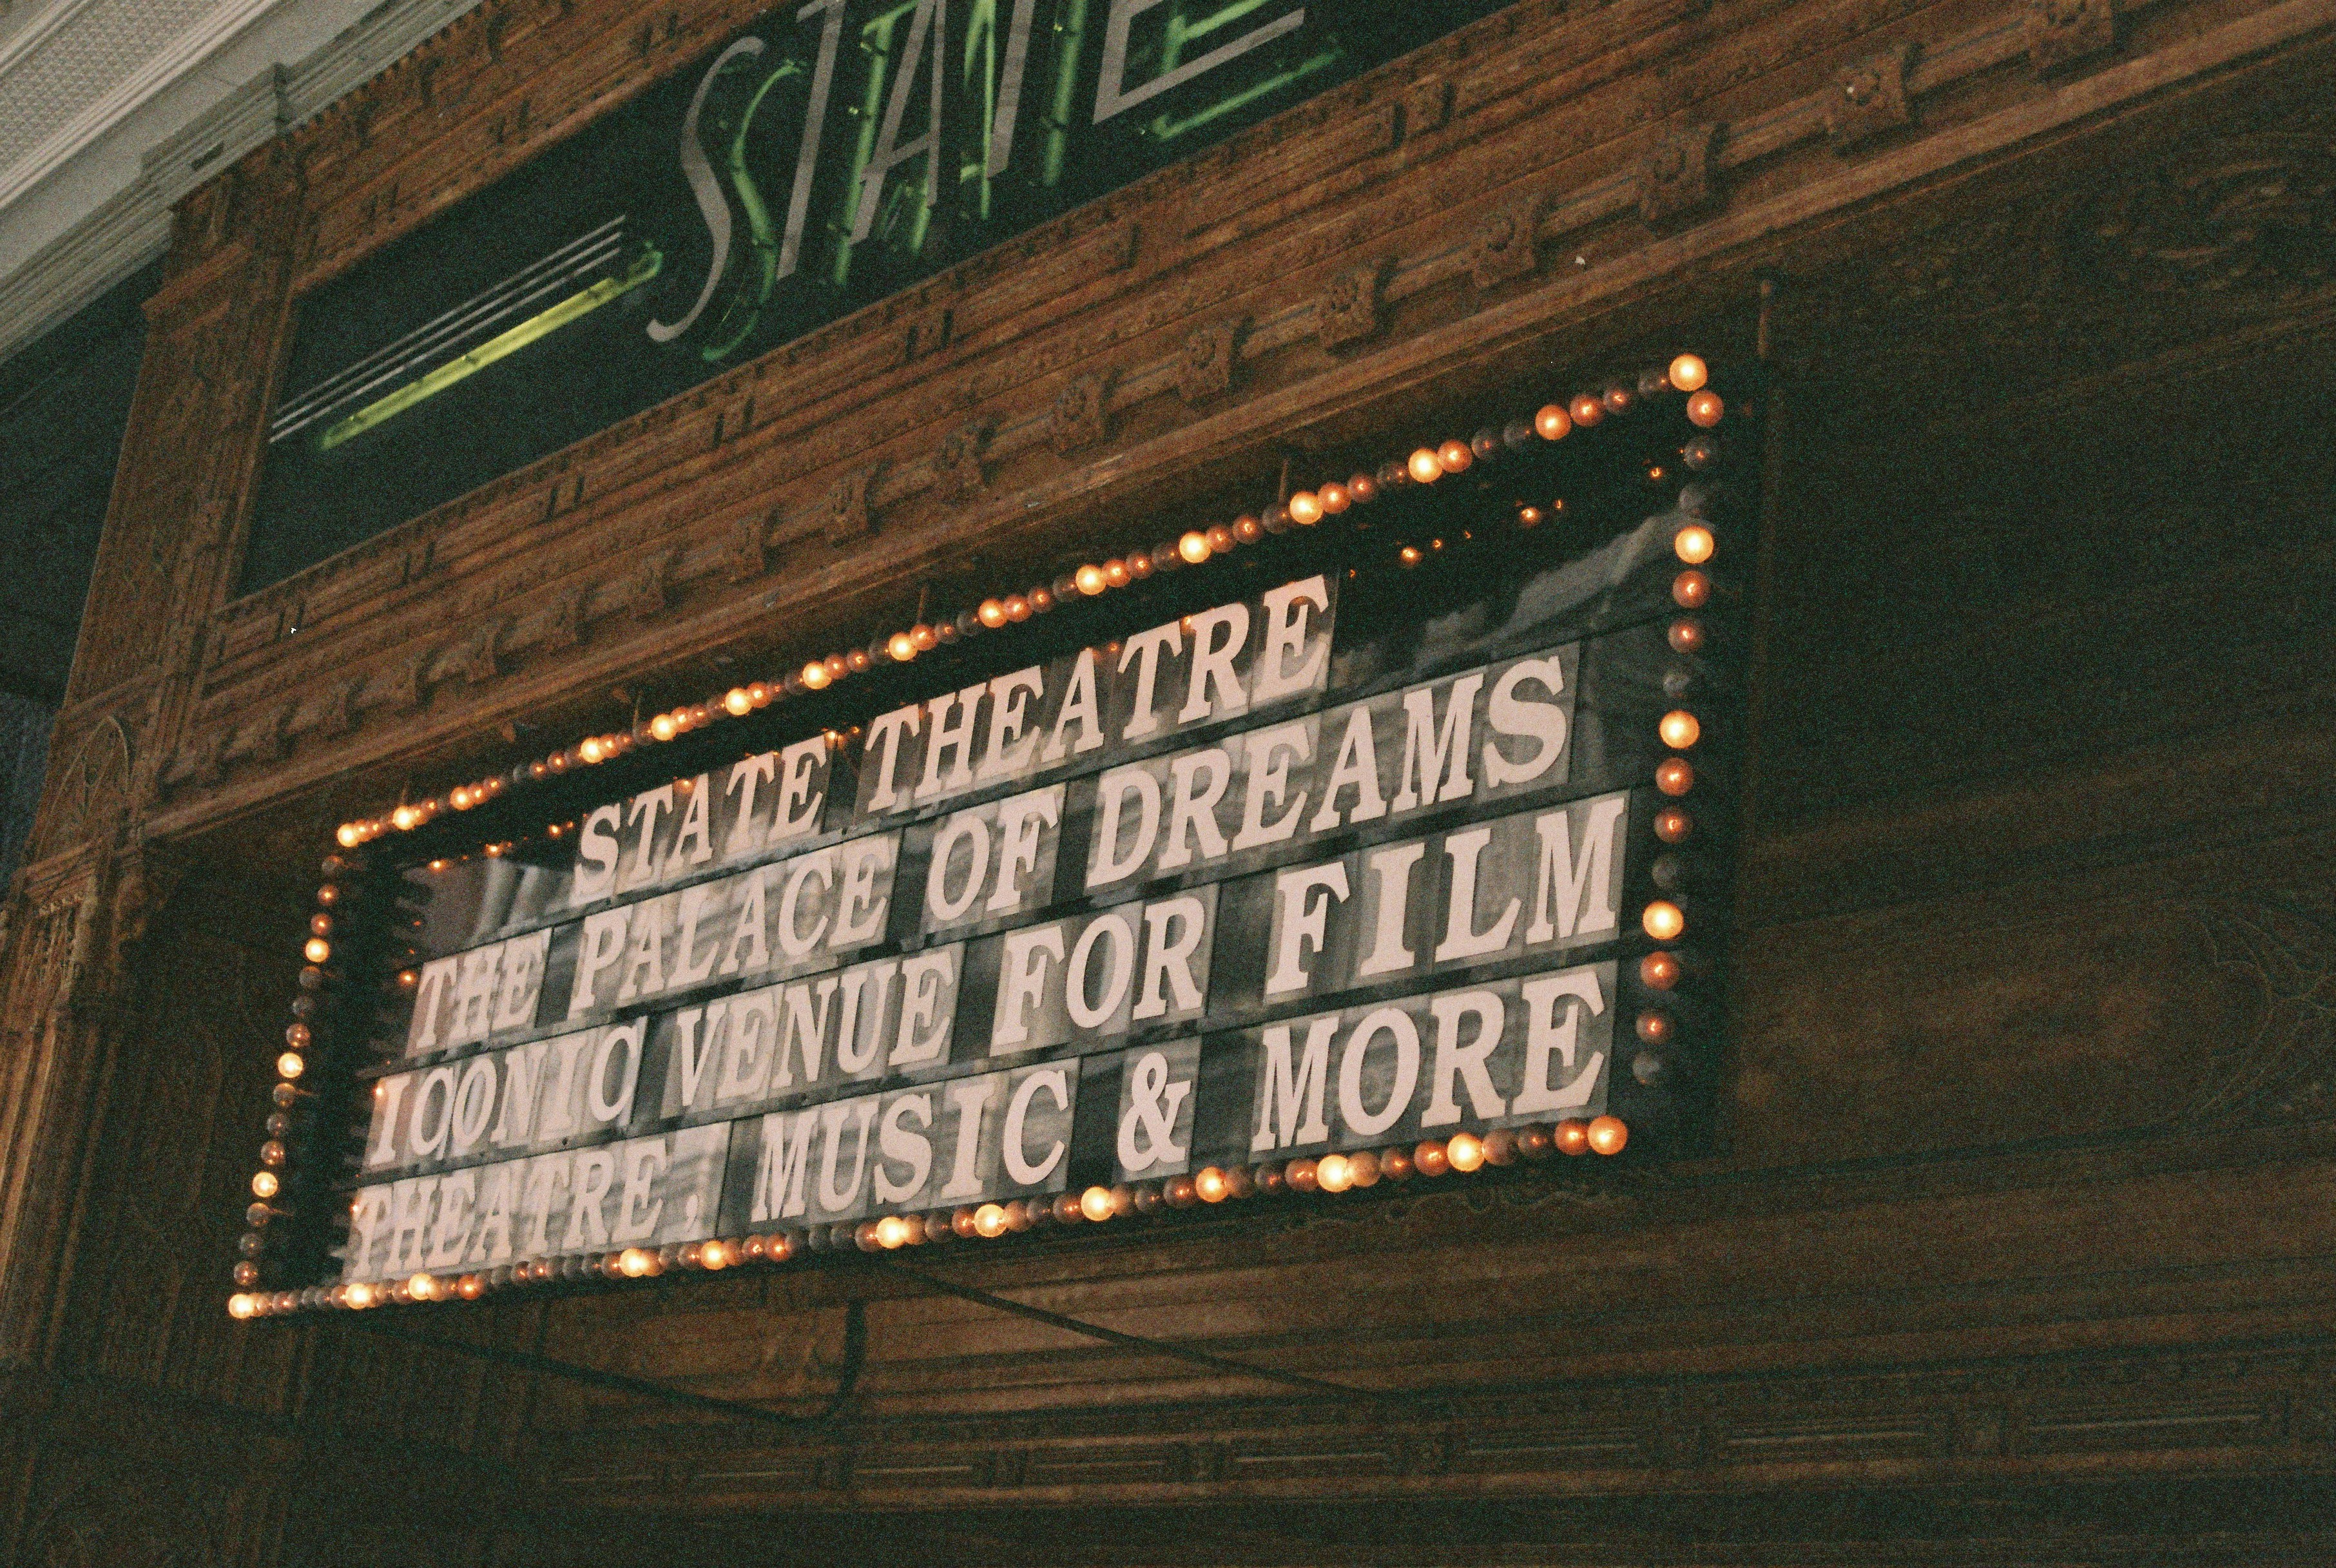 STATE
STATE THEATRE
THE PALACE OF DREAMS
ICONIC VENUE FOR FILM
THEATRE, MUSIC & MORE